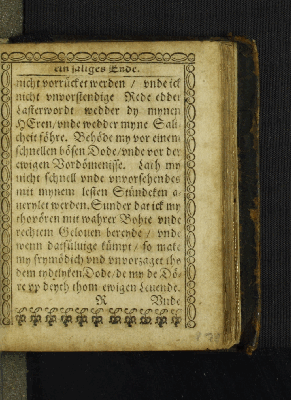 ein saliges Ende.
nicht vorrücket werden / vnde ick
nicht vnvorstendige Rede edder
Lasterwordt wedder dy mynen
HEren / vnde wedder myne Sali-
cheit föhre. Behöde my vor einem
schnellen bösen Dode / vnde vor der
ewigen Vordömenisse. Lath my
nicht schnell vnde vnvorsehendes
mit mynem lesten Stündeken a-
uerylet werden. Sunder dat ick my
thovören mit wahrer Bohte vnde
rechtem Gelouen berende / vnde
wenn datsüluige kümpt / so make
my frymödich vnd vnvorzaget tho
dem Dode / de my de Dö-
re vp deyth thom ewigen Leuende.
R Vnde